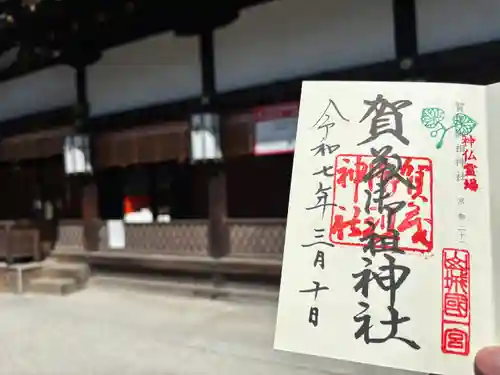 賀茂御祖神社
賀茂御祖神社
神仏霊場
山城國一宮
賀茂御祖神社
令和七年三月十日